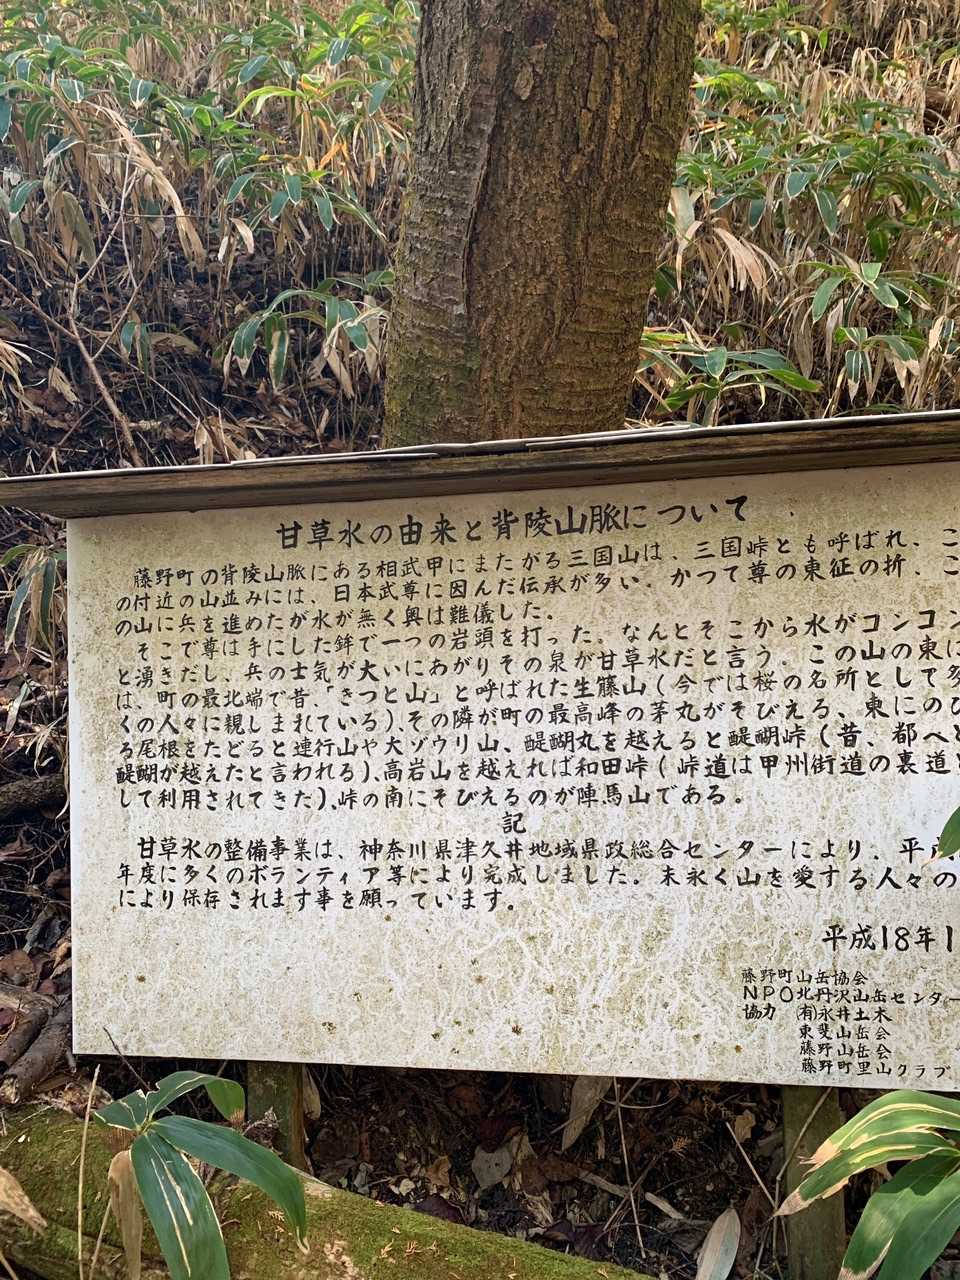 甘草水の由来と背陵山脈について
藤野町の背陵山脈にある相武甲にまたがる三国山は、三国峠とも呼ばれ、こ
の付近の山並みには、日本武尊に因んだ伝承が多い。かつて尊の東征の折、こ
の山に兵を進めたが水が無く奥は難儀した。
そこで尊は手にした鉾で一つの岩頭を打った。なんとそこから水がコンコン
と湧きだし、兵の士気が大いにあがりその泉が甘草水だと言う。この山の東に
は、町の最北端で昔、「きつと山」と呼ばれた生籐山(今では桜の名所として多
くの人々に親しまれている)、その隣が町の最高峰の茅丸がそびえる、東にのび
る尾根をたどると連行山や大ゾウリ山、醍醐丸を越えると醍醐峠(昔、都へと
醍醐が越えたと言われる)、高岩山を越えれば和田峠(峠道は甲州街道の裏道と
して利用されてきた)、峠の南にそびえるのが陣馬山である。
記
甘草水の整備事業は、神奈川県津久井地域県政総合センターにより、平成
年度に多くのボランティア等により完成しました。末永く山を愛する人々の
により保存されます事を願っています。
平成18年1
藤野町山岳協会
NPO北丹沢山岳センター
協力 (有)永井土木
東斐山岳会
藤野山岳会
藤野町里山クラブ